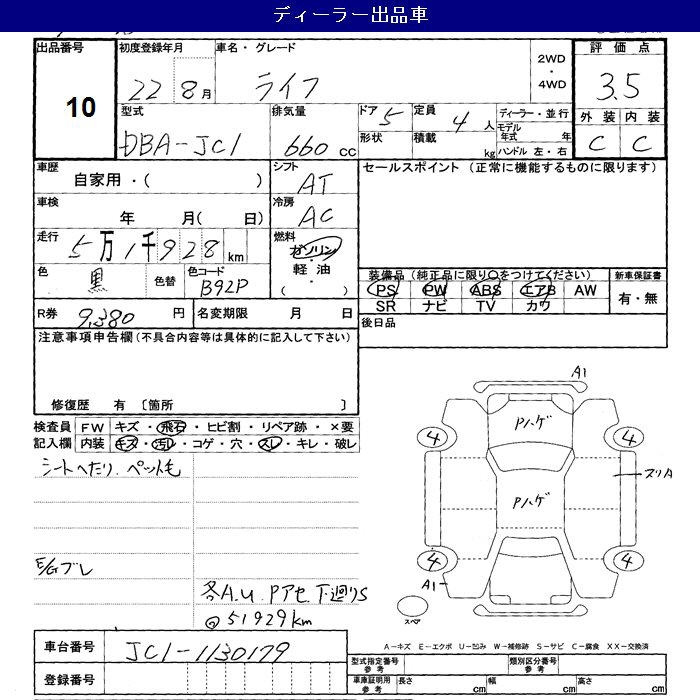 ディーラー出品車
出品番号
10
初度登録年月
22 8月
車名・グレード
ライフ
2WD
・
4WD
評価点
3.5
型式
DBA-JC1
排気量
660 cc
ドア 5
形状
定員 4 人
積載 kg
ディーラー・並行
モデル年式 年
ハンドル 左・右
外装 内装
C C
車歴
自家用・( )
シフト
AT
セールスポイント (正常に機能するものに限ります)
車検
年 月( 日)
冷房
AC
走行
5万1千928km
燃料
ガソリン
軽油
(・)
色
黒
色替
色コード
B92P
装備品(純正品に限り○をつけてください)
PS PW ABS エアB AW
SR ナビ TV カワ
新車保証書
有・無
R券 9,380 円
名変期限 月 日
後日品
注意事項申告欄(不具合内容等は具体的に記入して下さい)
修復歴 有 〔箇所 〕
検査員 FW キズ・飛石・ヒビ割・リペア跡・×要
記入欄 内装 キズ・汚れ・コゲ・穴・スレ・キレ・破レ
シートへたり、ペット毛
E/Gブレ
各A.U. Pアセ 下廻りS
@51929km
A1
Pハゲ
4 4
Pハゲ
スリA
4 4
A1
スペア
A-キズ E-エクボ U-凹み W-補修跡 S-サビ C-腐食 XX-交換済
車台番号 JC1-1130179
登録番号
型式指定番号 参考
類別区分番号 参考
車庫証明用 参考
長さ cm 幅 cm 高さ cm